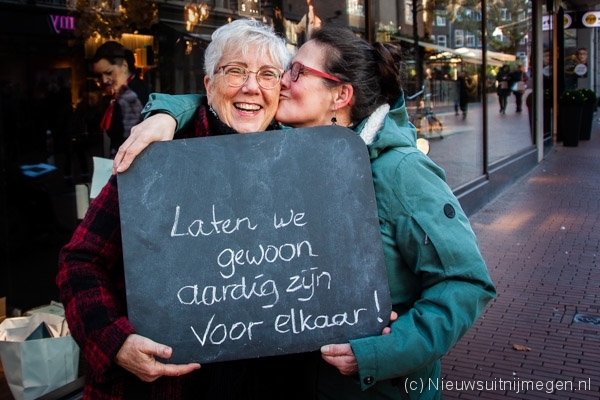 Laten we
gewoon
aardig zijn
voor elkaar!
(c) Nieuwsuitnijmegen.nl